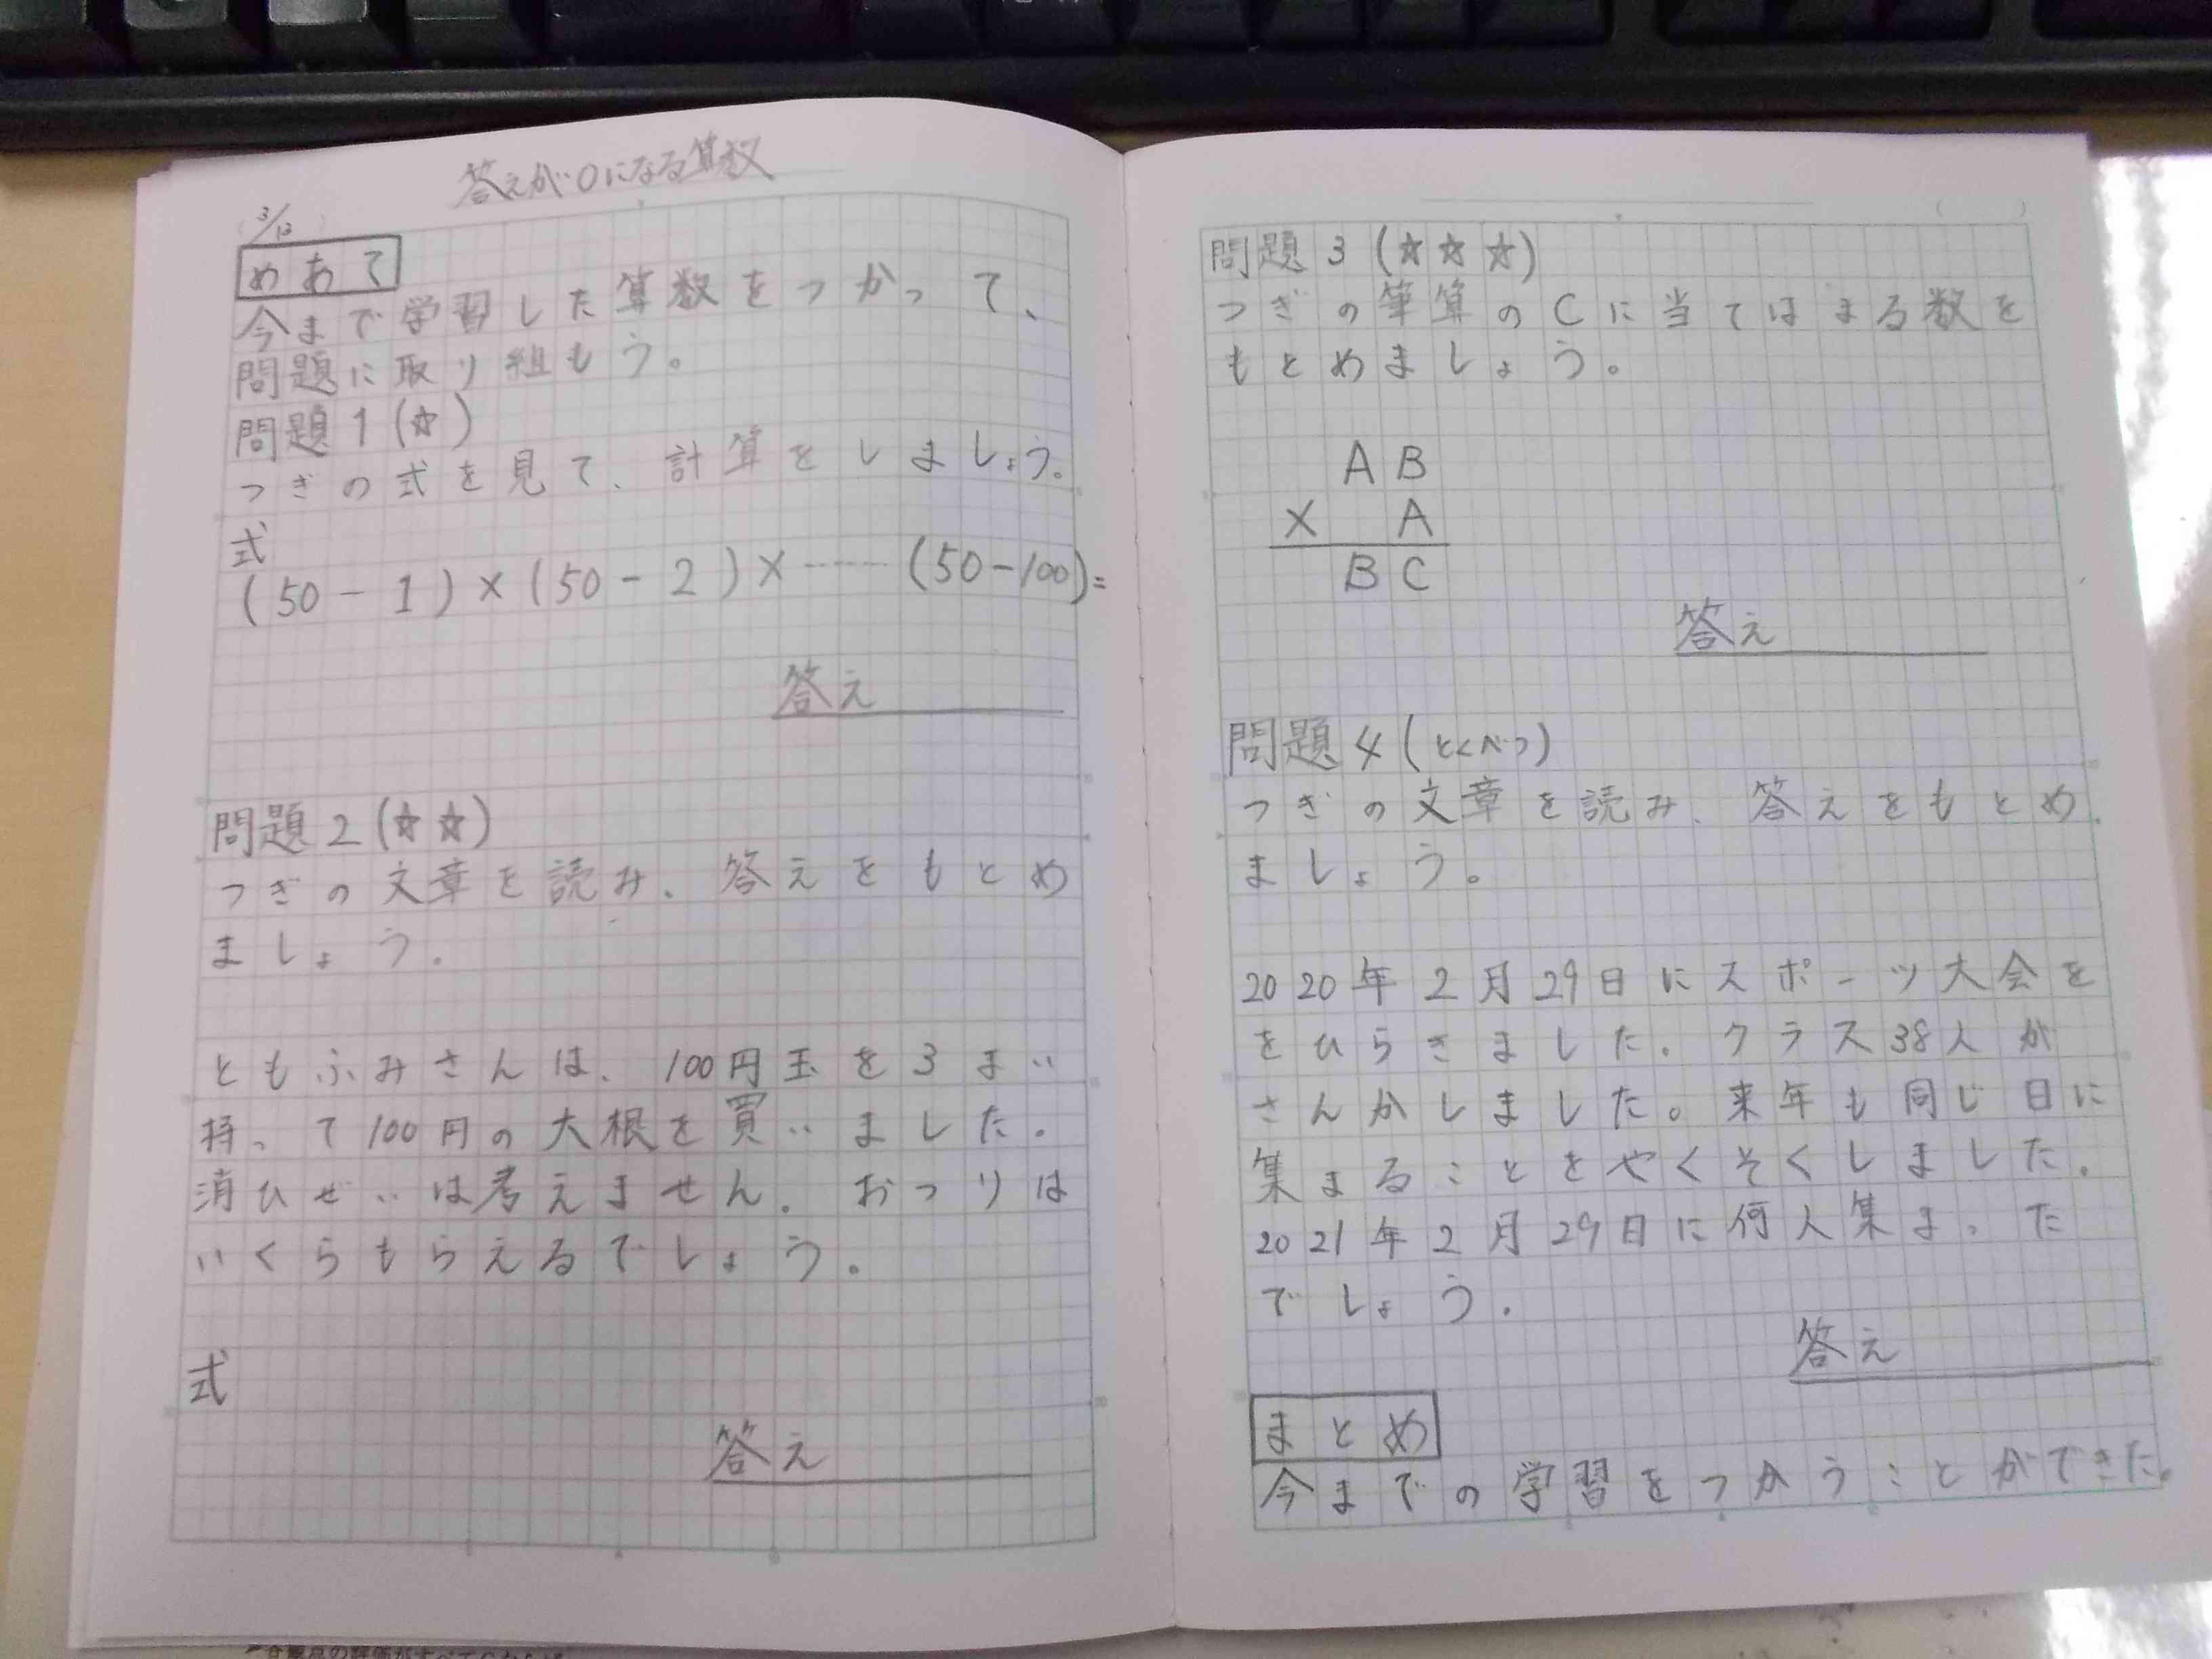 答えが0になる算数
3/12
めあて
今まで学習した算数をつかって、
問題に取り組もう。
問題1(☆)
つぎの式を見て、計算をしましょう。
式
(50-1)×(50-2)×……(50-100)=
答え
問題2(☆☆)
つぎの文章を読み、答えをもとめ
ましょう。
ともふみさんは、100円玉を3まい
持って100円の大根を買いました。
消ひぜいは考えません。おつりは
いくらもらえるでしょう。
式
答え
問題3(☆☆☆)
つぎの筆算のCに当てはまる数を
もとめましょう。
AB
× A
BC
答え
問題4(とくべつ)
つぎの文章を読み、答えをもとめ
ましょう。
2020年2月29日にスポーツ大会を
をひらきました。クラス38人が
さんかしました。来年も同じ日に
集まることをやくそくしました。
2021年2月29日に何人集まった
でしょう。
答え
まとめ
今までの学習をつかうことができた。